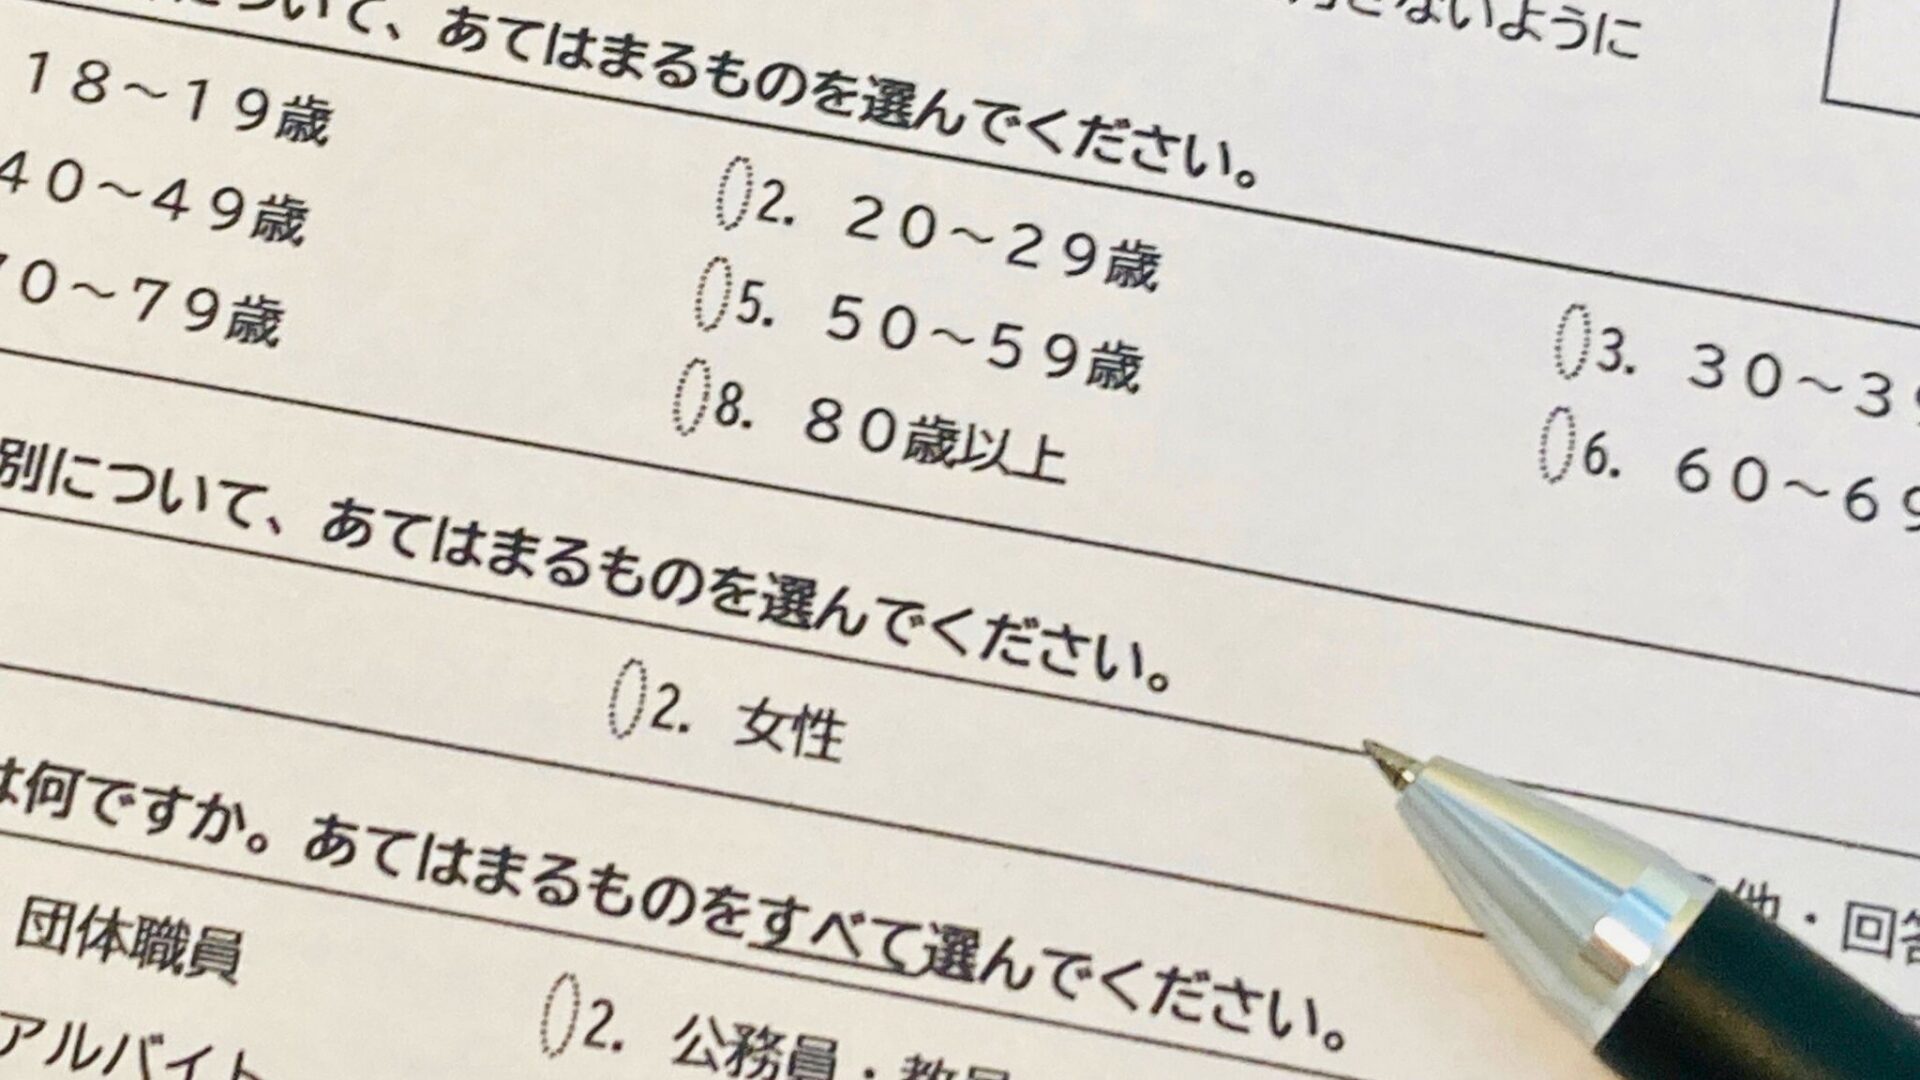 ないように
ついて、あてはまるものを選んでください。
１８～１９歳
2. ２０～２９歳
3. ３０～３
４０～４９歳
5. ５０～５９歳
6. ６０～６９
０～７９歳
8. ８０歳以上
別について、あてはまるものを選んでください。
2. 女性
他・回答
は何ですか。あてはまるものをすべて選んでください。
団体職員
2. 公務員・教員
アルバイト